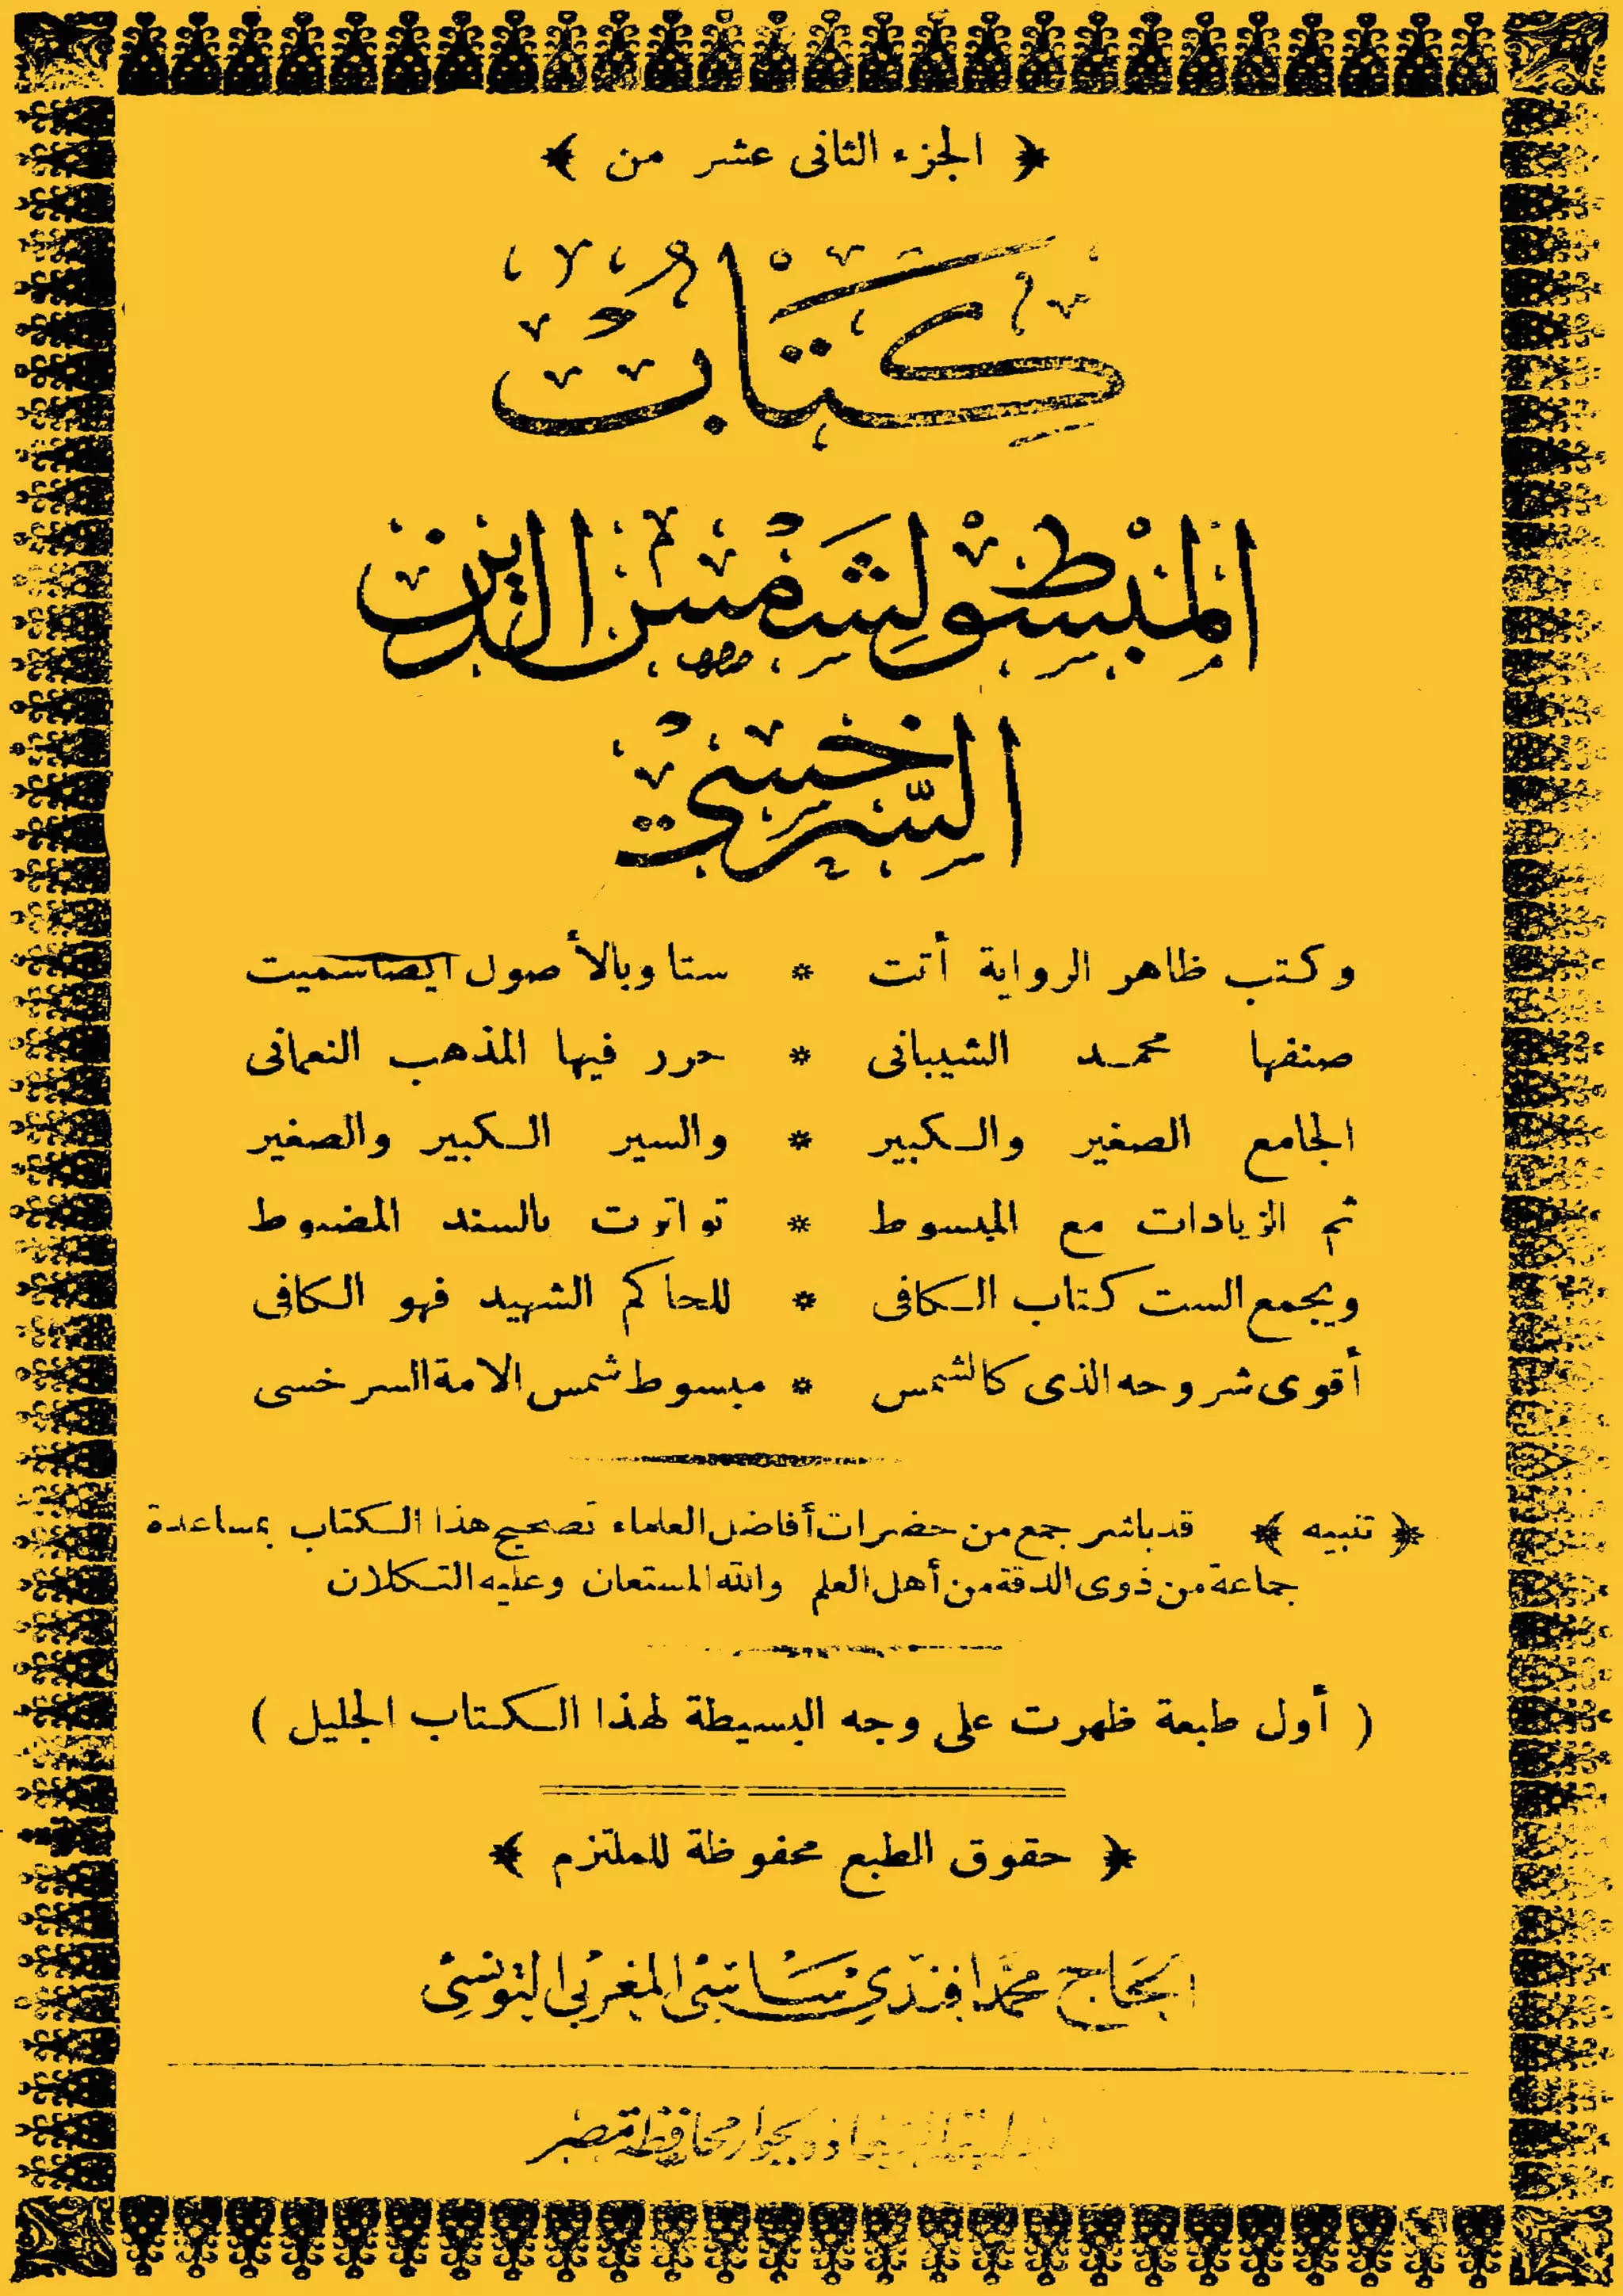 ﴿ الجزء الثانى عشر من ﴾
كتاب
المبسوط لشمس الدين
السرخسي
وكتب ظاهر الرواية أتت * ستا وبالأصول أيضا سميت
صنفها محمد الشيبانى * حرر فيها المذهب النعمانى
الجامع الصغير والكبير * والسير الكبير والصغير
ثم الزيادات مع المبسوط * تواترت بالسند المضبوط
ويجمع الست كتاب الكافى * للحاكم الشهيد فهو الكافى
أقوى شروحه الذى كالشمس * مبسوط شمس الامة السرخسى
﴿ تنبيه ﴾ قد باشر جمع من حضرات أفاضل العلماء تصحيح هذا الكتاب بمساعدة
جماعة من ذوى الدقة من أهل العلم والله المستعان وعليه التكلان
( أول طبعة ظهرت على وجه البسيطة لهذا الكتاب الجليل )
﴿ حقوق الطبع محفوظة للملتزم ﴾
الحاج محمد افندي ساسي المغربي التونسي
بجوار محافظة مصر